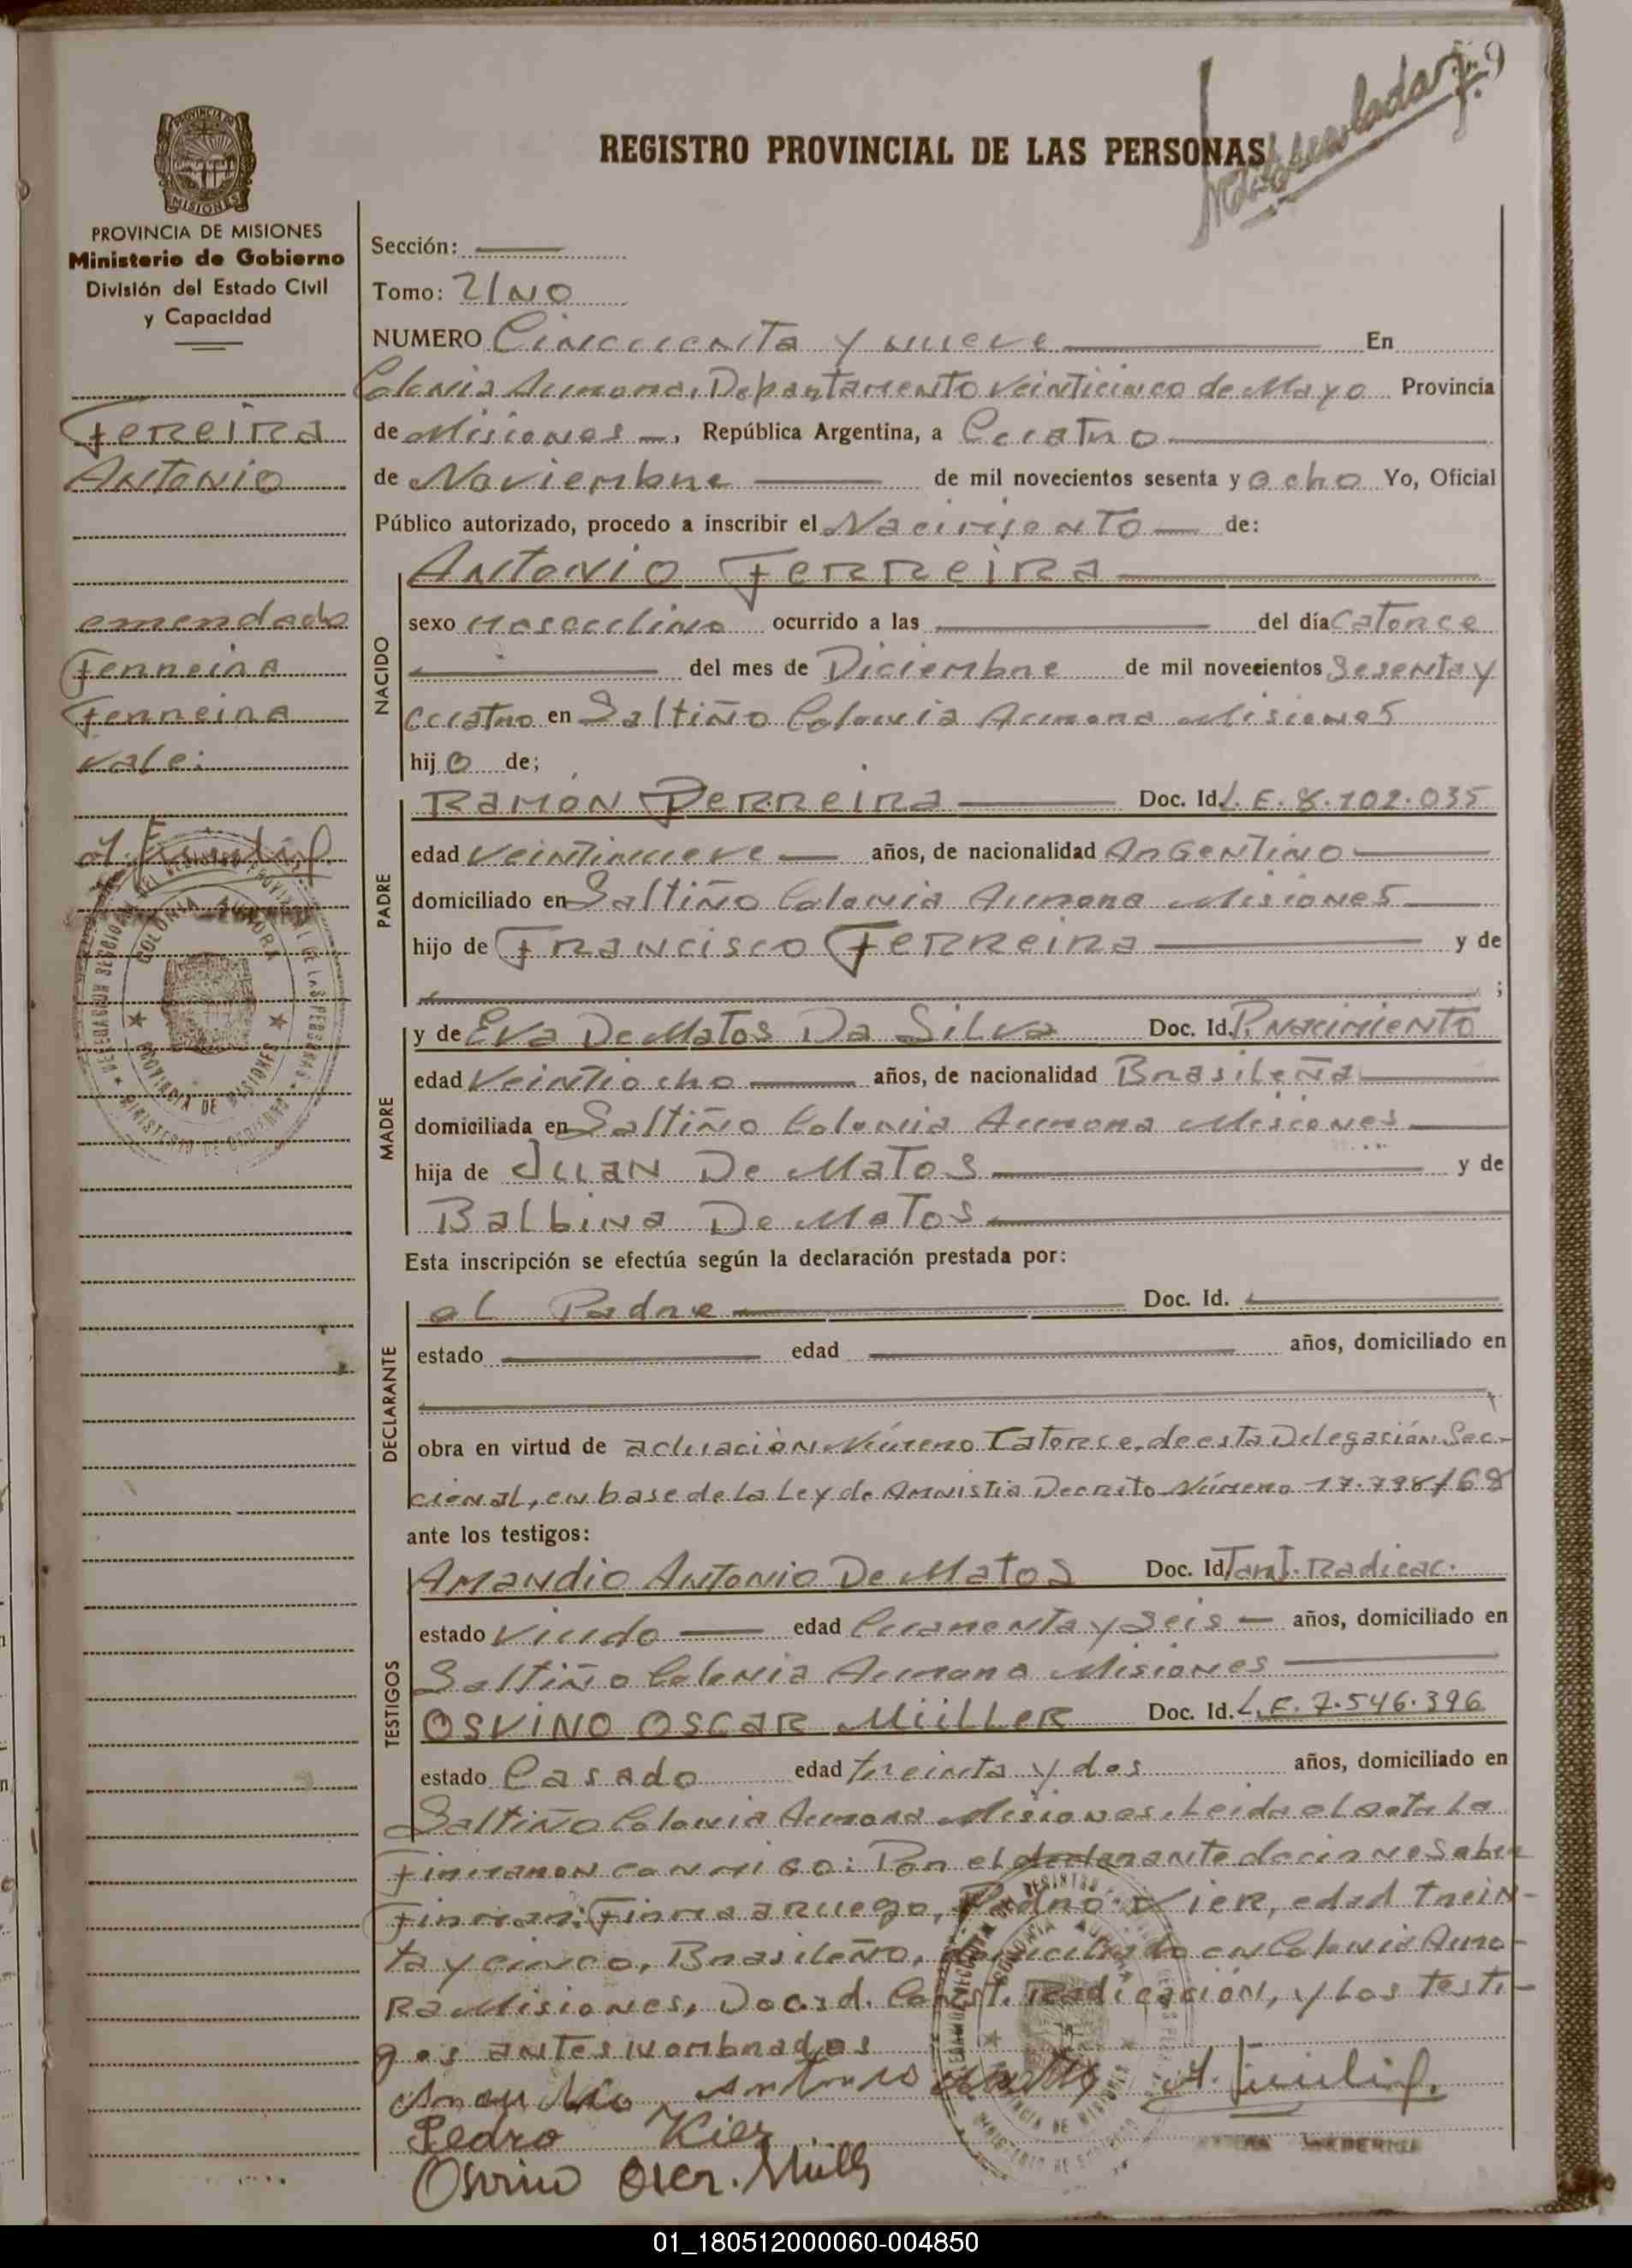 REGISTRO PROVINCIAL DE LAS PERSONAS
PROVINCIA DE MISIONES
Ministerio de Gobierno
División del Estado Civil
y Capacidad
Ferreira
Antonio
emendado
Ferreira
Ferreira
vale:
Sección:
Tomo: UNO
NUMERO Cincuenta y nueve En
Colonia Aurora, Departamento Veinticinco de Mayo Provincia
de Misiones, República Argentina, a Cuatro
de Noviembre de mil novecientos sesenta y ocho Yo, Oficial
Público autorizado, procedo a inscribir el Nacimiento de:
NACIDO
Antonio Ferreira
sexo Masculino ocurrido a las del día Catorce
del mes de Diciembre de mil novecientos Sesenta y
cuatro en Saltiño Colonia Aurora Misiones
hijo de;
PADRE
Ramón Ferreira Doc. Id. L.E. 8.102.035
edad Veintinueve años, de nacionalidad Argentino
domiciliado en Saltiño Colonia Aurora Misiones
hijo de Francisco Ferreira y de
;
MADRE
y de Eva De Matos Da Silva Doc. Id. P. nacimiento
edad Veintiocho años, de nacionalidad Brasileña
domiciliada en Saltiño Colonia Aurora Misiones
hija de Juan De Matos y de
Balbina De Matos
Esta inscripción se efectúa según la declaración prestada por:
DECLARANTE
el Padre Doc. Id.
estado edad años, domiciliado en
obra en virtud de actuación Número Catorce, de esta Delegación Sec-
cional, en base de la Ley de Amnistia Decreto Número 17.798/68
ante los testigos:
TESTIGOS
Amandio Antonio De Matos Doc. Id. Tarj. Radicac.
estado Viudo edad Cuarenta y Seis años, domiciliado en
Saltiño Colonia Aurora Misiones
Osvino Oscar Müller Doc. Id. L.E. 7.546.396
estado Casado edad treinta y dos años, domiciliado en
Saltiño Colonia Aurora Misiones. Leida el acta la
Firmaron conmigo: Por el declarante decir no Saber
Firmar: Firma a ruego, Pedro Kier, edad trein-
ta y cinco, Brasileño, domiciliado en Colonia Auro-
ra Misiones, Doc. Id. Const. Radicación, y los testi-
gos antes nombrados
Antonio
Pedro Kier
Osvino Oscr. Müller
COLONIA AURORA
PROVINCIA DE MISIONES
MINISTERIO DE GOBIERNO
01_180512000060-004850